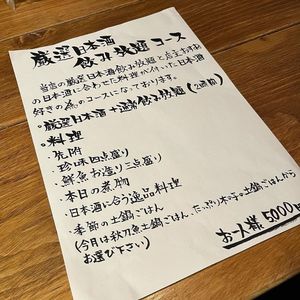 厳選日本酒
飲み放題コース
当店の厳選日本酒飲み放題と店主おすすめ
の日本酒に合わせた料理が付いた日本酒
好きの為のコースになっております。
・厳選日本酒+通常飲み放題(2時間)
・料理
・先附
・珍味四点盛り
・鮮魚お造り三点盛り
・本日の煮物
・日本酒に合う逸品料理
・季節の土鍋ごはん
(今月は秋刀魚土鍋ごはん、たっぷり木の子の土鍋ごはんから
お選び下さい)
お一人様 5000円